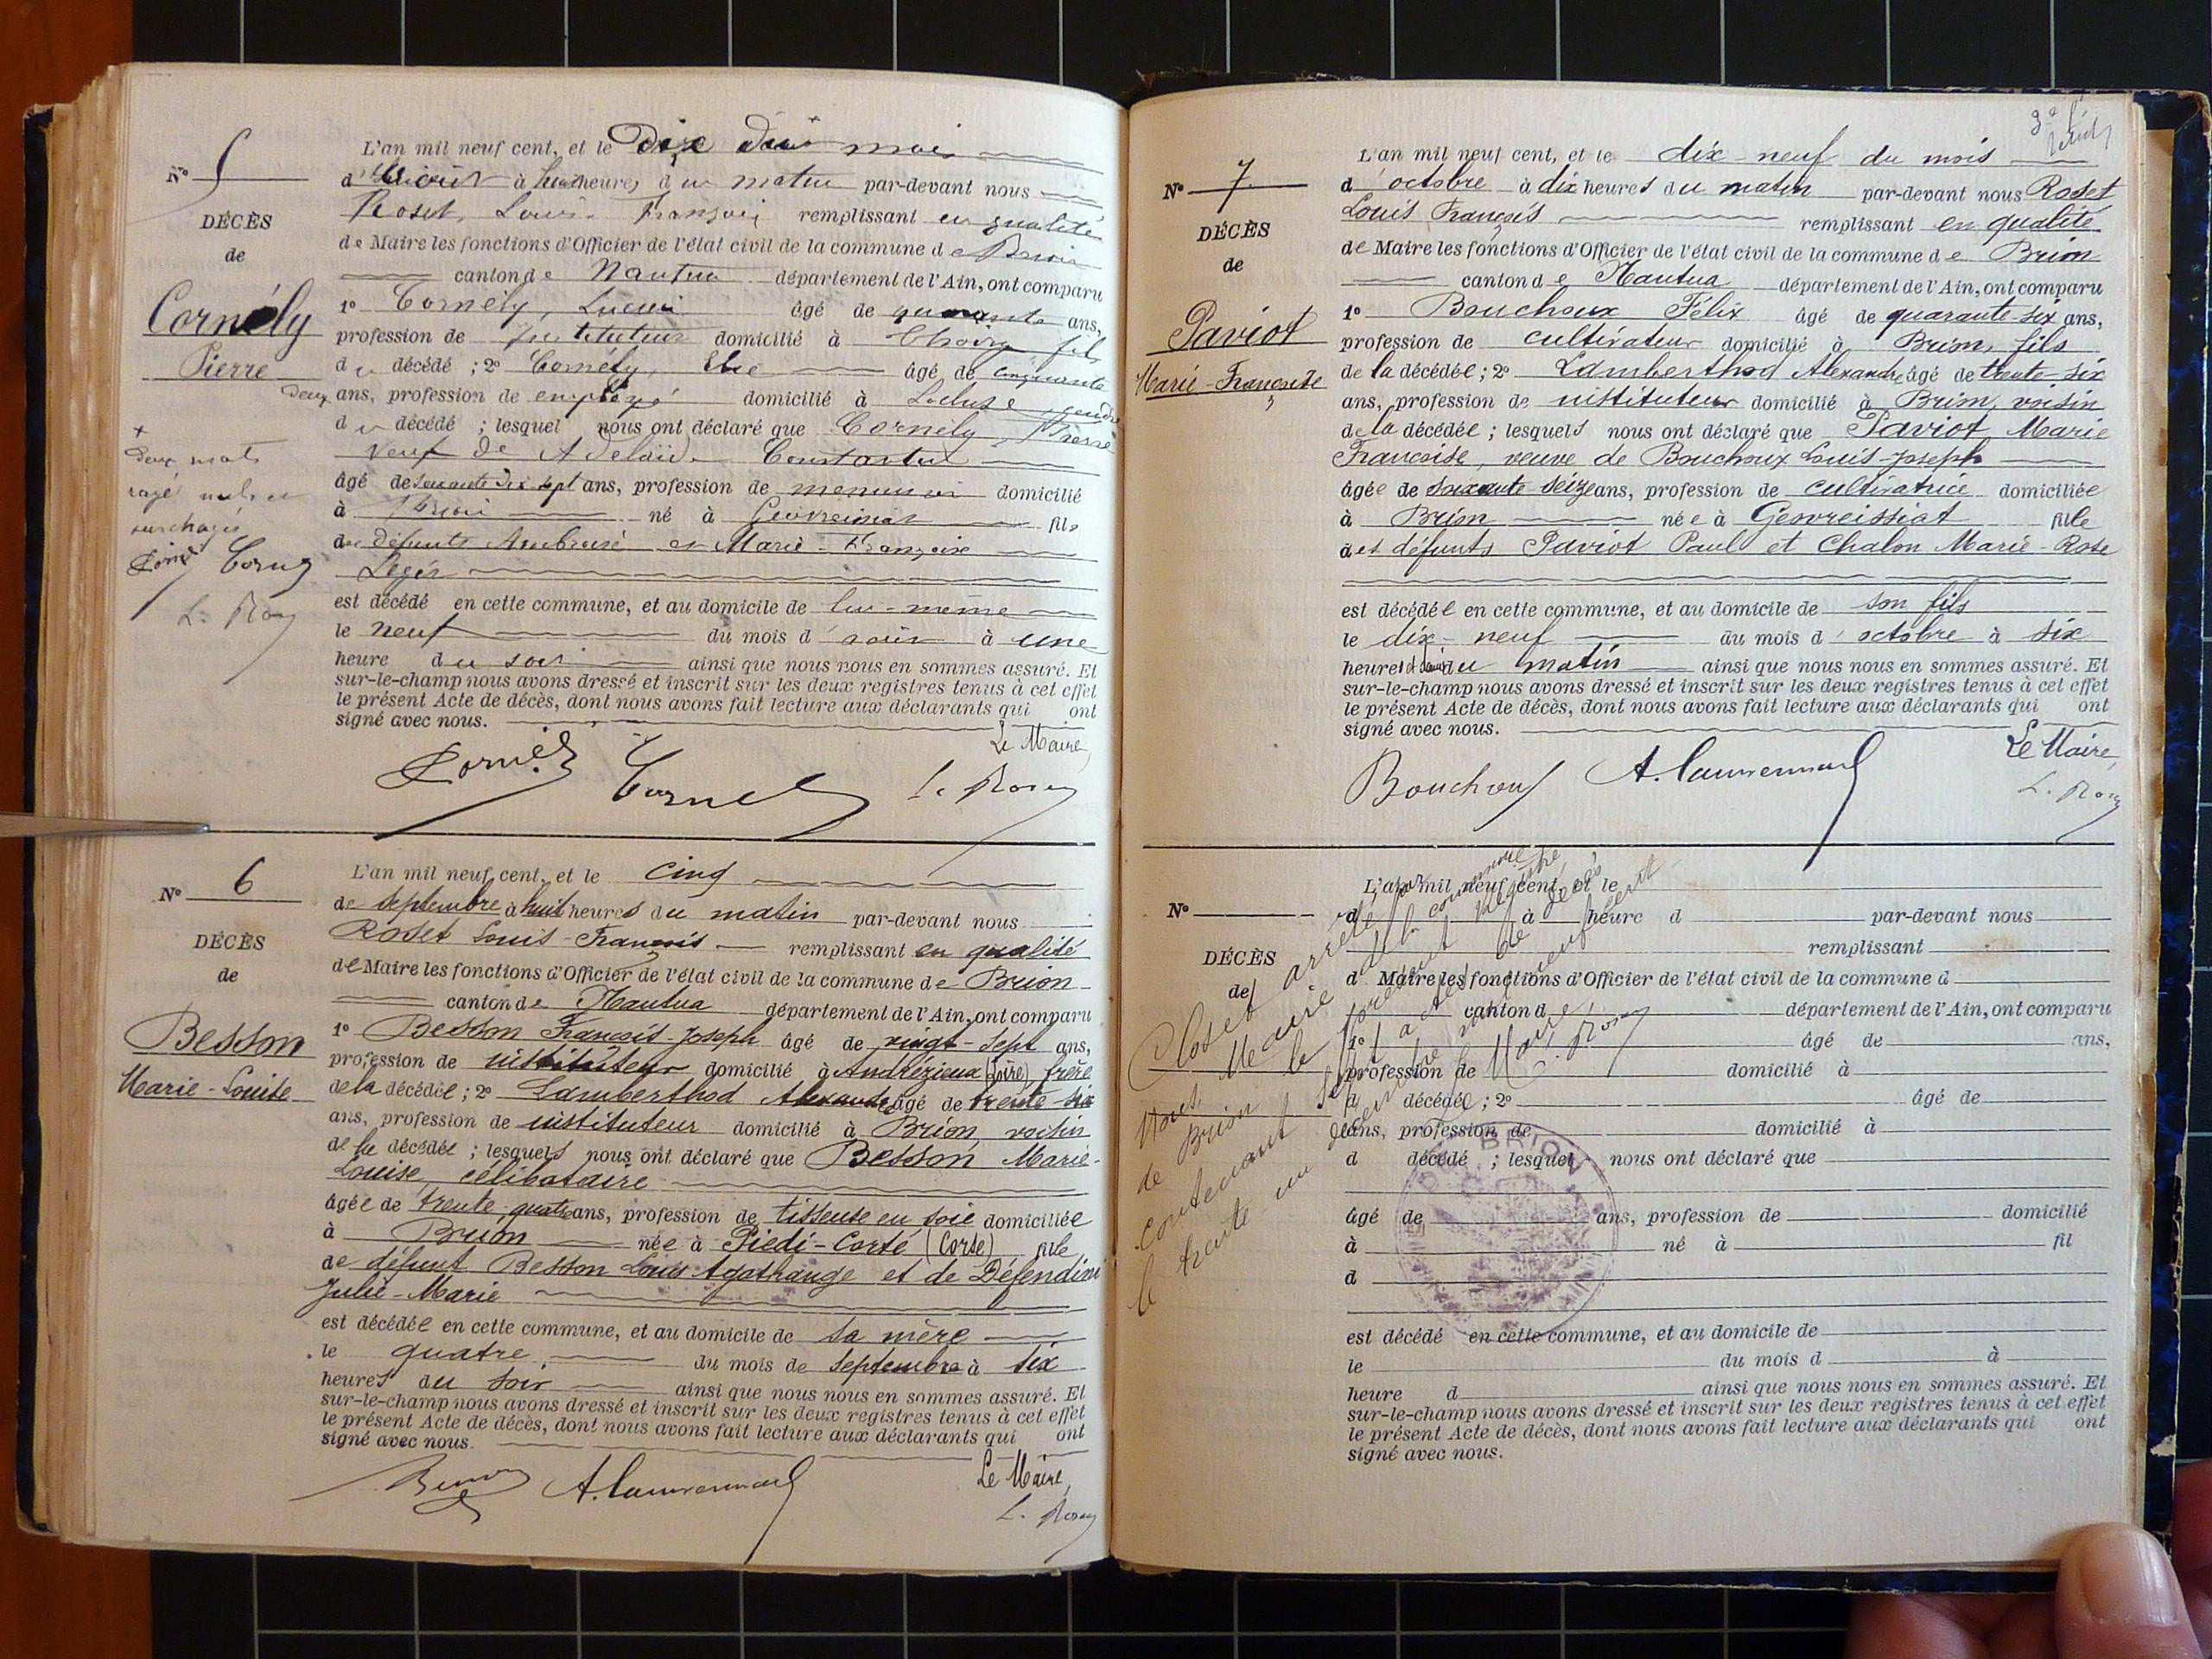 N° 5
DÉCÈS
de
Cornély
Pierre
L'an mil neuf cent, et le Dix du mois
d'août à huit heures du matin par-devant nous
Roset, Louis-François remplissant en qualité
de Maire les fonctions d'Officier de l'état civil de la commune de Brion
canton de Nantua département de l'Ain, ont comparu
1° Cornély, Lucien âgé de quarante ans,
profession de Instituteur domicilié à fils
du décédé ; 2° Cornély, âgé de cinquante
deux ans, profession de employé domicilié à
du décédé ; lesquel nous ont déclaré que Cornély, Pierre
veuf de Adelaïde
âgé de soixante dix sept ans, profession de menuisier domicilié
à Brion né à Géovreissiat fils
de défunts Ambroise et Marie-Françoise
Léger
est décédé en cette commune, et au domicile de lui-même
le neuf du mois d'août à une
heure du soir ainsi que nous nous en sommes assuré. Et
sur-le-champ nous avons dressé et inscrit sur les deux registres tenus à cet effet
le présent Acte de décès, dont nous avons fait lecture aux déclarants qui ont
signé avec nous.
Le Maire
L. Roset
Deux mots
rayés nuls et
surchargés
L. Roset
N° 6
DÉCÈS
de
Besson
Marie-Louise
L'an mil neuf cent, et le cinq
de septembre à huit heures du matin par-devant nous
Roset Louis-François remplissant en qualité
de Maire les fonctions d'Officier de l'état civil de la commune de Brion
canton de Nantua département de l'Ain, ont comparu
1° Besson François-Joseph âgé de vingt-sept ans,
profession de instituteur domicilié à Andrézieux (Loire) frère
de la décédée ; 2° Lamberthod Alexandre âgé de trente-six
ans, profession de instituteur domicilié à Brion, voisin
de la décédée ; lesquels nous ont déclaré que Besson Marie-
Louise, célibataire
âgée de trente quatre ans, profession de tisseuse en soie domiciliée
à Brion née à Piedi-Corté (Corse) fille
de défunt Besson Louis Agathange et de Défendini
Julie-Marie
est décédée en cette commune, et au domicile de sa mère
le quatre du mois de septembre à six
heures du soir ainsi que nous nous en sommes assuré. Et
sur-le-champ nous avons dressé et inscrit sur les deux registres tenus à cet effet
le présent Acte de décès, dont nous avons fait lecture aux déclarants qui ont
signé avec nous.
Le Maire,
L. Roset
N° 7
DÉCÈS
de
Paviot
Marie-Françoise
L'an mil neuf cent, et le dix-neuf du mois
d'octobre à dix heures du matin par-devant nous Roset
Louis François remplissant en qualité
de Maire les fonctions d'Officier de l'état civil de la commune de Brion
canton de Nantua département de l'Ain, ont comparu
1° Bouchoux Félix âgé de quarante-six ans,
profession de cultivateur domicilié à Brion, fils
de la décédée ; 2° Lamberthod Alexandre âgé de trente-six
ans, profession de instituteur domicilié à Brion, voisin
de la décédée ; lesquels nous ont déclaré que Paviot Marie
Françoise, veuve de Bouchoux Louis-Joseph
âgée de soixante seize ans, profession de cultivatrice domiciliée
à Brion née à Géovreissiat fille
des défunts Paviot Paul et Chalon Marie-Rose
est décédée en cette commune, et au domicile de son fils
le dix-neuf du mois d'octobre à six
heures du matin ainsi que nous nous en sommes assuré. Et
sur-le-champ nous avons dressé et inscrit sur les deux registres tenus à cet effet
le présent Acte de décès, dont nous avons fait lecture aux déclarants qui ont
signé avec nous.
Le Maire,
Bouchoux
L. Roset
N°
DÉCÈS
de
L'an mil neuf cent, et le
d à heure d par-devant nous
remplissant
d Maire les fonctions d'Officier de l'état civil de la commune d
canton d département de l'Ain, ont comparu
1° âgé de ans,
profession de domicilié à
d décédé ; 2° âgé de
ans, profession de domicilié à
d décédé ; lesquel nous ont déclaré que
âgé de ans, profession de domicilié
à né à fil
d
est décédé en cette commune, et au domicile de
le du mois d à
heure d ainsi que nous nous en sommes assuré. Et
sur-le-champ nous avons dressé et inscrit sur les deux registres tenus à cet effet
le présent Acte de décès, dont nous avons fait lecture aux déclarants qui ont
signé avec nous.
Closet arrêté par
Nous Maire de la commune
de Brion le présent registre
contenant sept actes de décès
le trente un décembre mil neuf cent
Le Maire
L. Roset
BRION